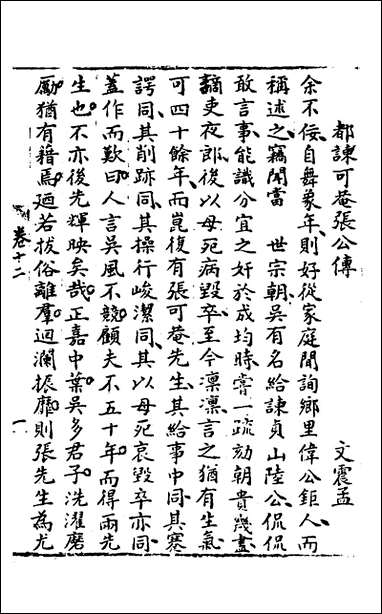 都諫可菴張公傳
文震孟
余不佞自舞象年則好從家庭間詢鄉里偉公鉅人而
稱述之竊聞當 世宗朝吳有名給諫貞山陸公侃侃
敢言事能識分宜之奸於成均時嘗一疏劾朝貴幾盡
謫吏夜郎後以母死病毀卒至今凜凜言之猶有生氣
可四十餘年而崑復有張可菴先生其給事中同其蹇
諤同其削跡同其操行峻潔同其以母死哀毀卒亦同
蓋作而歎曰人言吳風不競顧夫不五十年而得兩先
生也不亦後先輝映矣哉正嘉中葉吳多君子洗濯磨
厲猶有藉焉廼若拔俗離羣迴瀾振靡則張先生為尤
卷十二
一